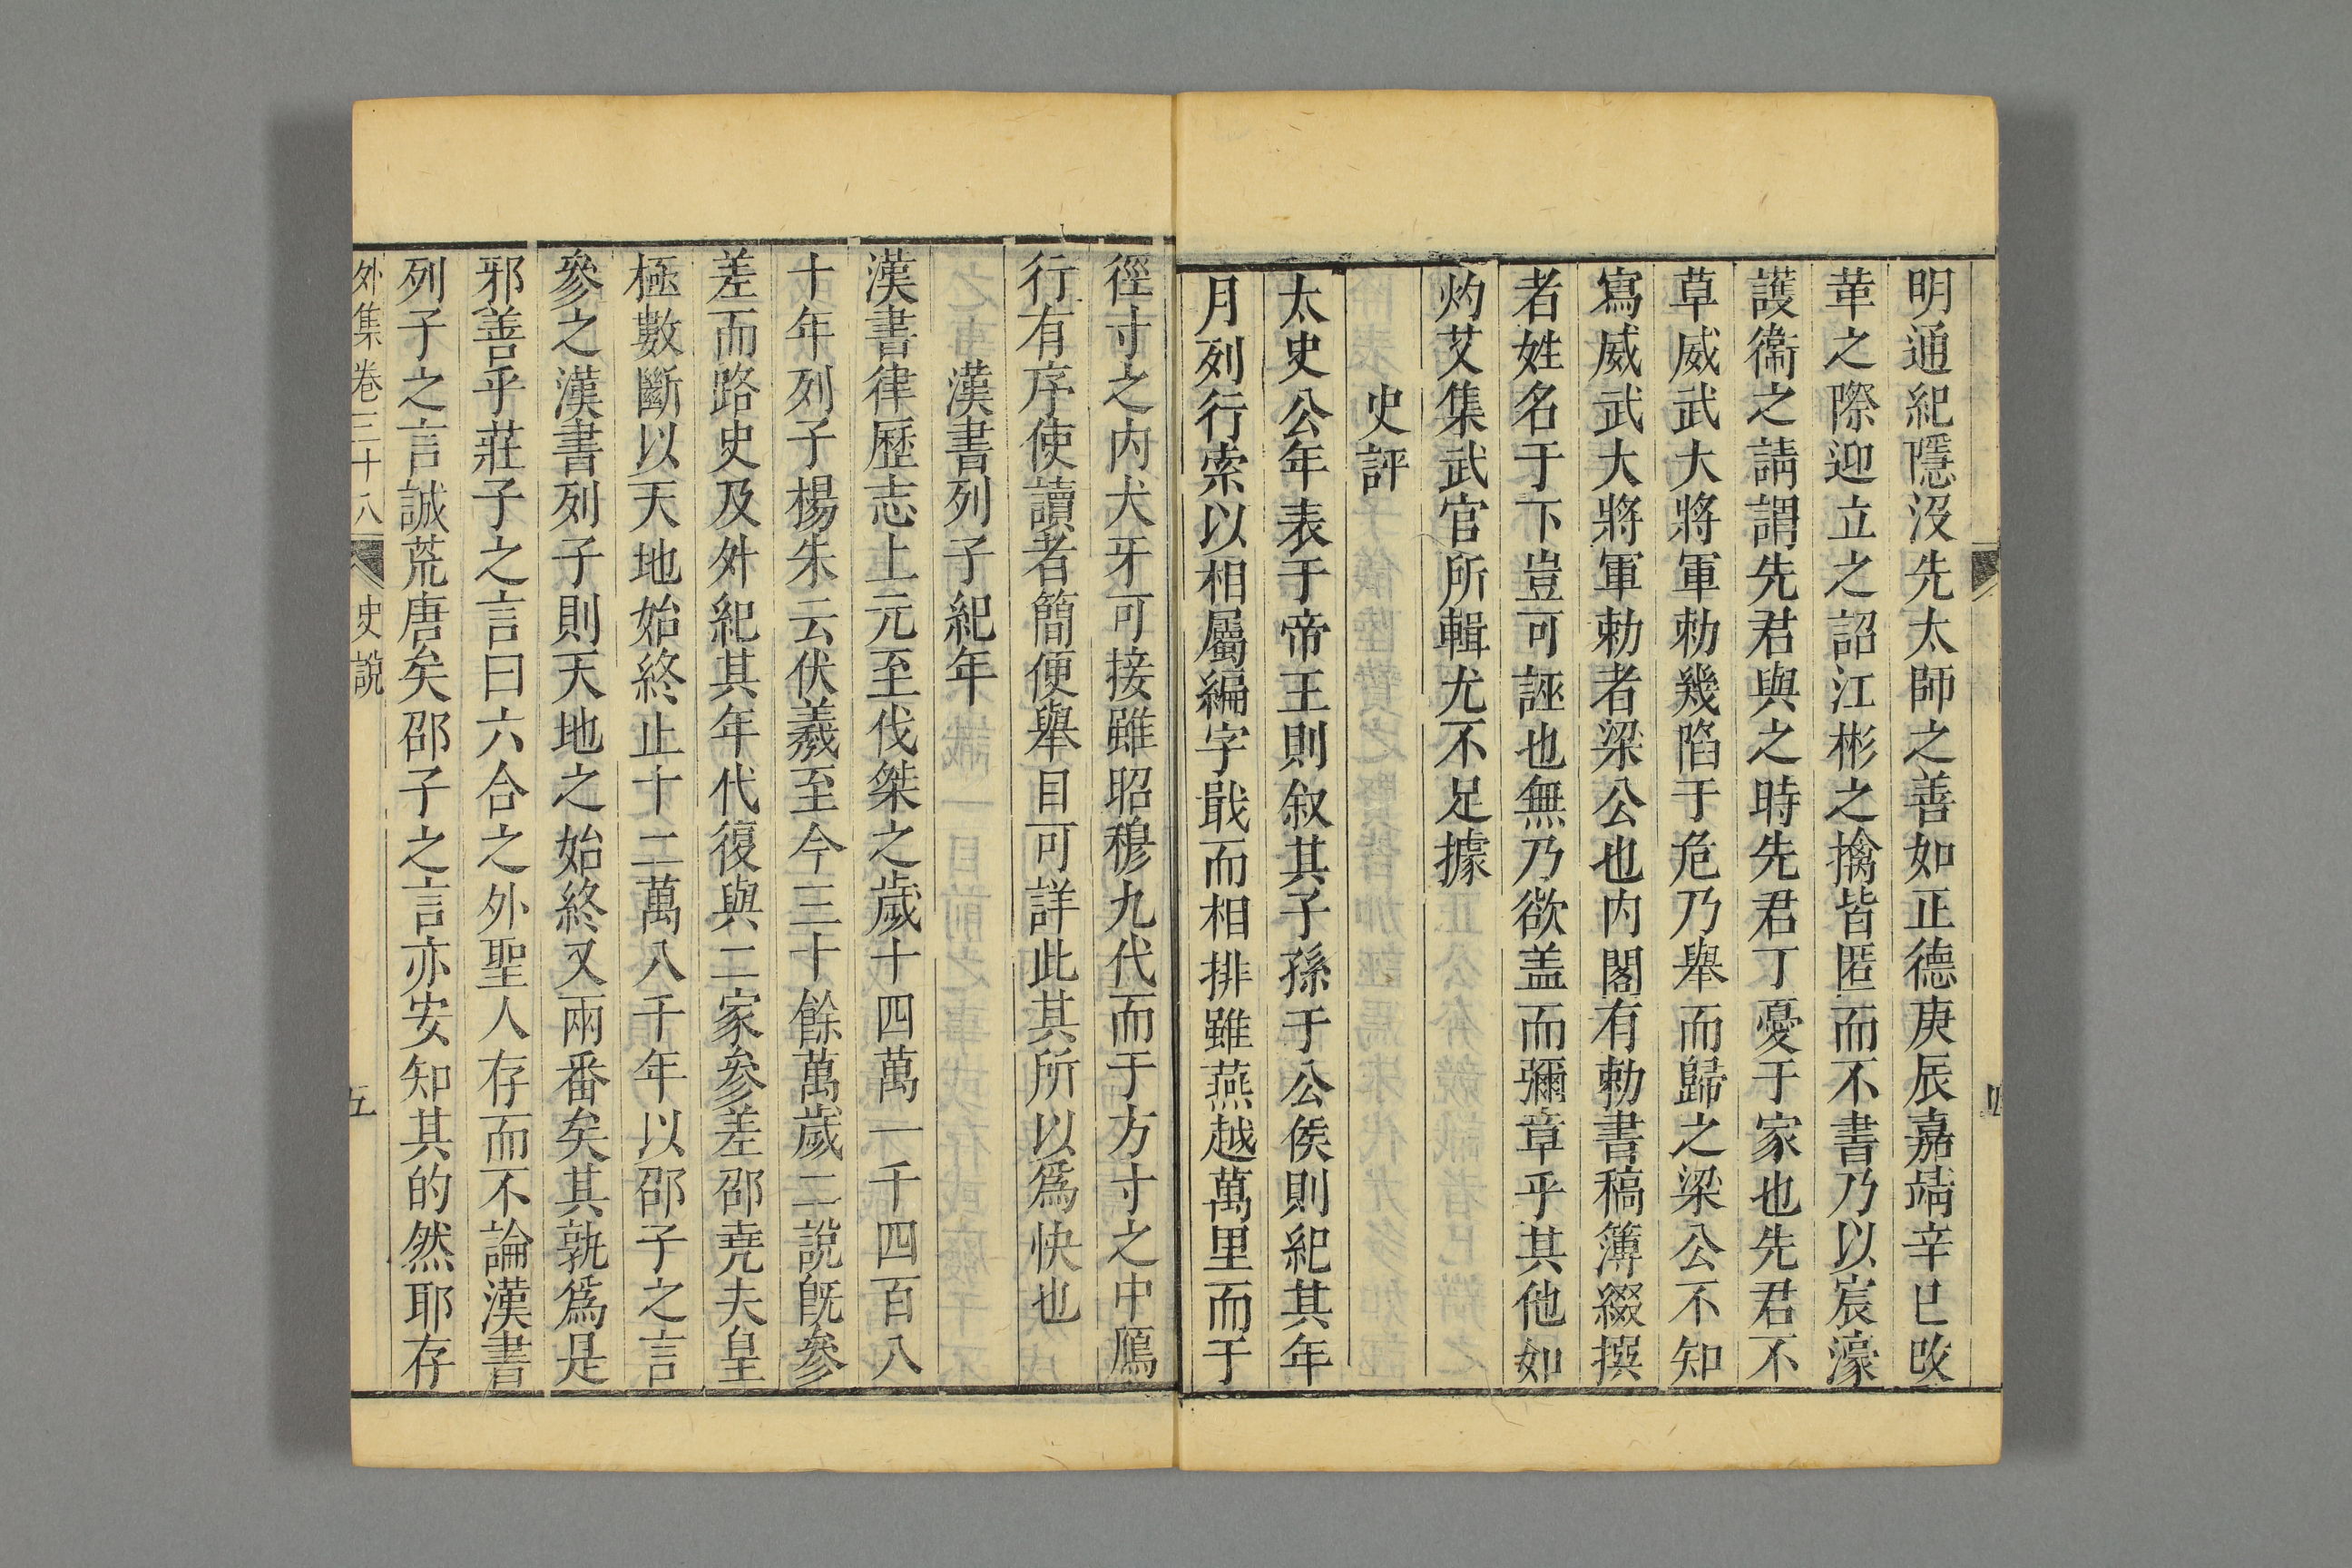 明通紀隱沒先太師之善如正德庚辰嘉靖辛巳改
革之際迎立之詔江彬之擒皆匿而不書乃以宸濠
護衞之請謂先君與之時先君丁憂于家也先君不
草威武大將軍勅幾陷于危乃舉而歸之梁公不知
寫威武大將軍勅者梁公也內閣有勅書稿簿綴撰
者姓名于下豈可誣也無乃欲盖而彌章乎其他如
灼艾集武官所輯尤不足據
史評
太史公年表于帝王則叙其子孫于公侯則紀其年
月列行索以相屬編字戢而相排雖燕越萬里而于
徑寸之內犬牙可接雖昭穆九代而于方寸之中鴈
行有序使讀者簡便舉目可詳此其所以爲快也
漢書列子紀年
漢書律歷志上元至伐桀之歲十四萬一千四百八
十年列子楊朱云伏羲至今三十餘萬歲二說旣參
差而路史及外紀其年代復與二家參差邵堯夫皇
極數斷以天地始終止十二萬八千年以邵子之言
參之漢書列子則天地之始終又兩番矣其孰爲是
邪善乎莊子之言曰六合之外聖人存而不論漢書
列子之言誠荒唐矣邵子之言亦安知其的然耶存
外集卷三十八 史說 五